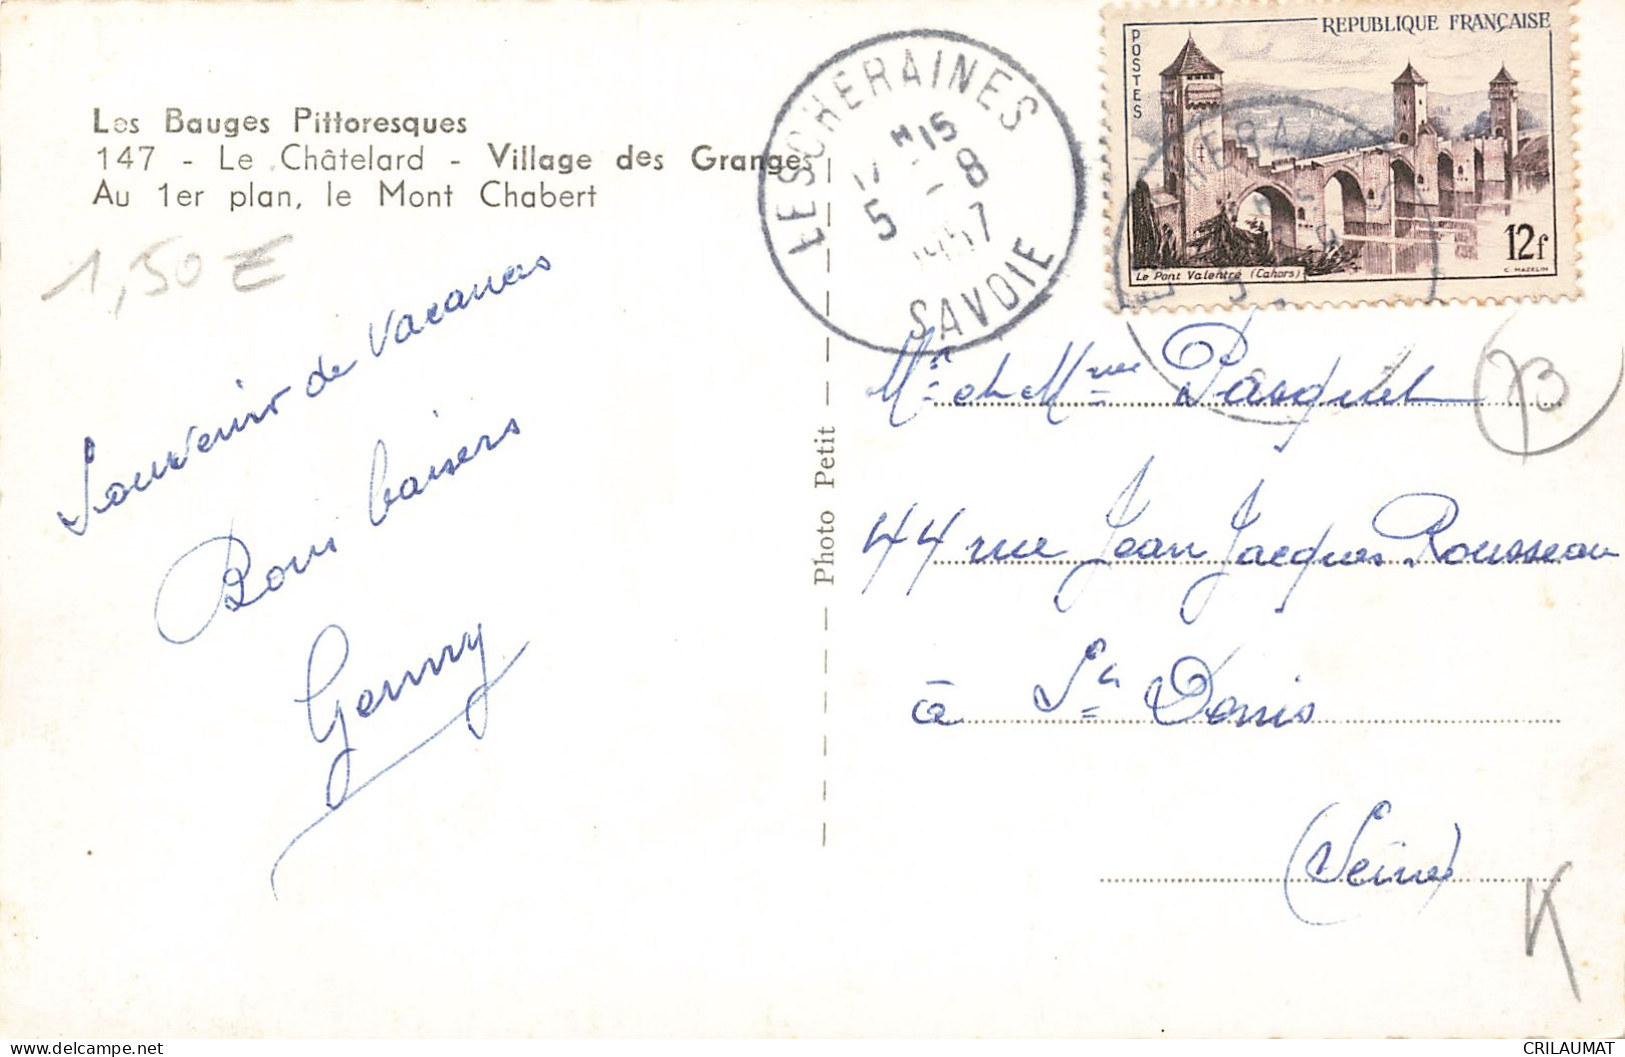 Les Bauges Pittoresques
147 - Le Châtelard - Village des Granges
Au 1er plan, le Mont Chabert
1,50 €
Souvenir de vacances
Bons baisers
Gemmy
Photo Petit
LESCHERAINES
H15
5 - 8
1957
SAVOIE
REPUBLIQUE FRANÇAISE
POSTES
Le Pont Valentré (Cahors)
12f
C. MAZELIN
Mr et Mme Pasquet
44 rue Jean Jacques Rousseau
à St Denis
(Seine)
73
K
delcampe.net
CRILAUMAT